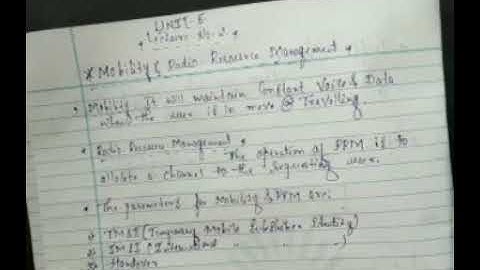 UNIT-5
Lecture No. 2
* Mobility & Radio Resource Management
• Mobility It will maintain Constant Voice & Data
when the user is in move @ Travelling.
• Radio Resource Management
The operation of RRM is to
allocate a channel to the requesting user.
• The parameters for Mobility & RRM are:
TMSI (Temporary Mobile Subscriber Identity)
IMSI (International " " )
Handover